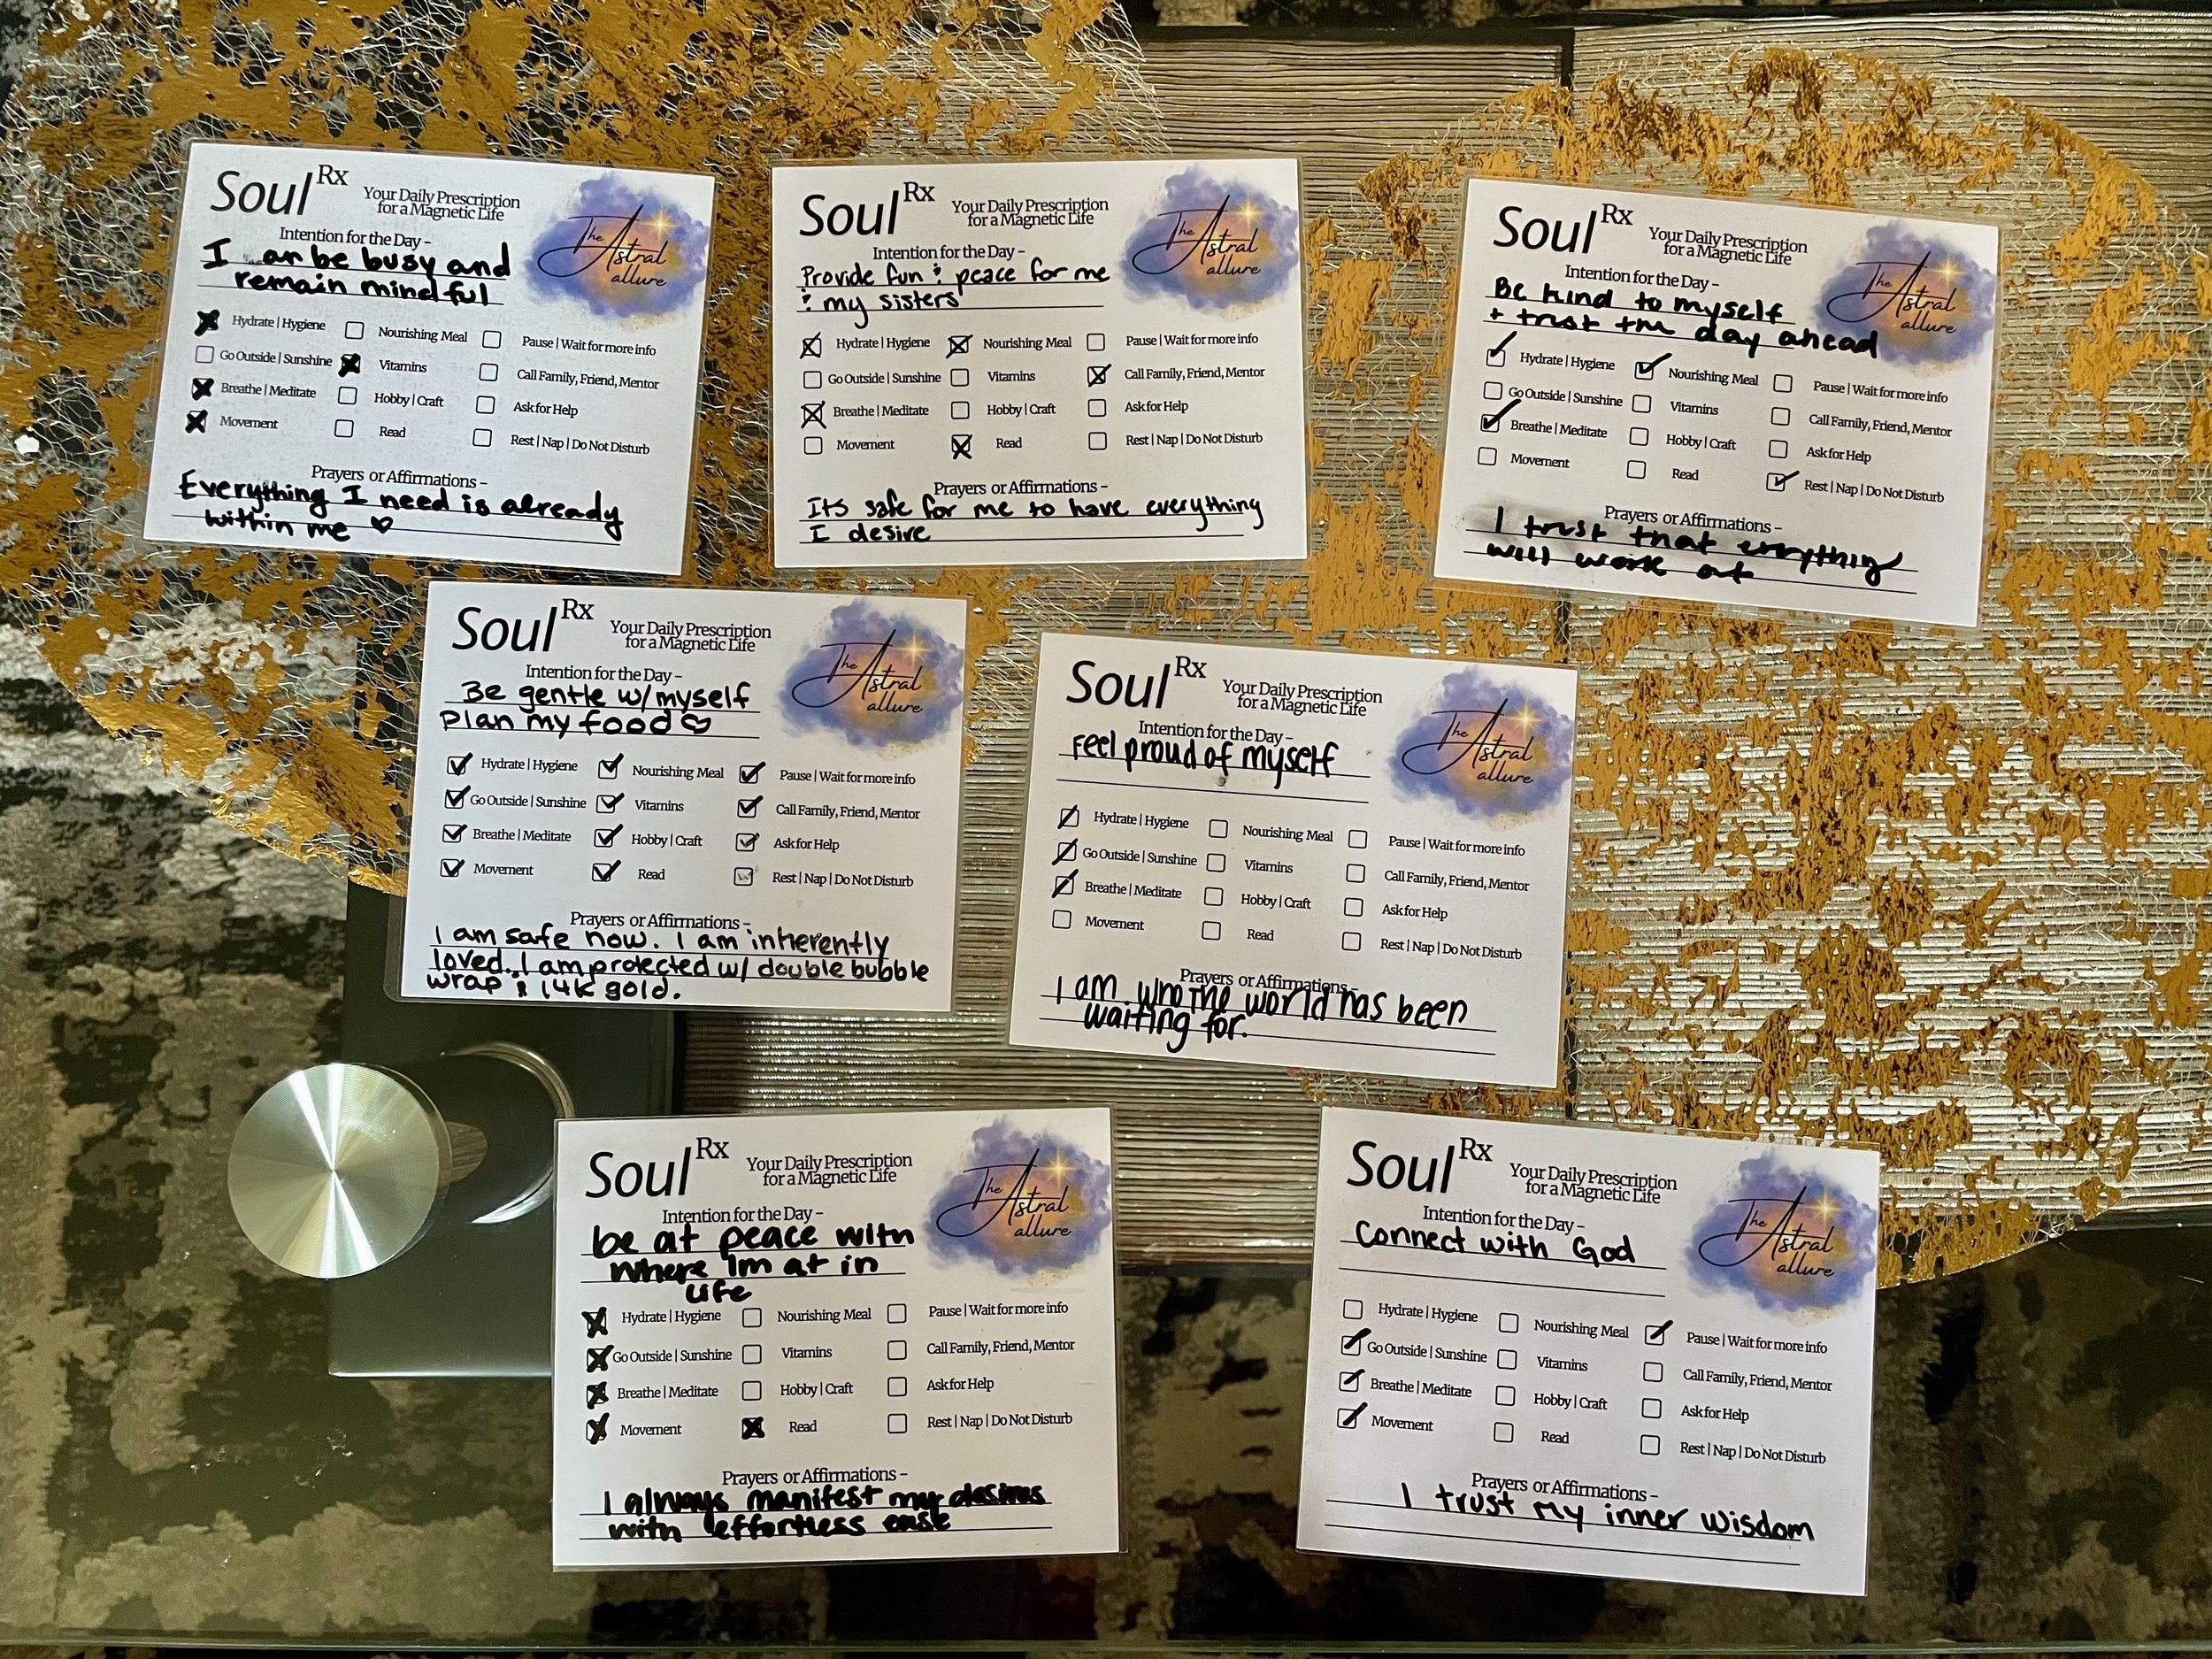 Soul Rx
Your Daily Prescription
for a Magnetic Life
The Astral allure
Intention for the Day –
I an be busy and
remain mindful
Hydrate | Hygiene
Nourishing Meal
Pause | Wait for more info
Go Outside | Sunshine
Vitamins
Call Family, Friend, Mentor
Breathe | Meditate
Hobby | Craft
Ask for Help
Movement
Read
Rest | Nap | Do Not Disturb
Prayers or Affirmations –
Everything I need is already
within me ♡
Soul Rx
Your Daily Prescription
for a Magnetic Life
The Astral allure
Intention for the Day –
Provide fun & peace for me
& my sisters
Hydrate | Hygiene
Nourishing Meal
Pause | Wait for more info
Go Outside | Sunshine
Vitamins
Call Family, Friend, Mentor
Breathe | Meditate
Hobby | Craft
Ask for Help
Movement
Read
Rest | Nap | Do Not Disturb
Prayers or Affirmations –
Its safe for me to have everything
I desire
Soul Rx
Your Daily Prescription
for a Magnetic Life
The Astral allure
Intention for the Day –
Be kind to myself
+ trust the day ahead
Hydrate | Hygiene
Nourishing Meal
Pause | Wait for more info
Go Outside | Sunshine
Vitamins
Call Family, Friend, Mentor
Breathe | Meditate
Hobby | Craft
Ask for Help
Movement
Read
Rest | Nap | Do Not Disturb
Prayers or Affirmations –
I trust that everything
will work out
Soul Rx
Your Daily Prescription
for a Magnetic Life
The Astral allure
Intention for the Day –
Be gentle w/ myself
plan my food ♡
Hydrate | Hygiene
Nourishing Meal
Pause | Wait for more info
Go Outside | Sunshine
Vitamins
Call Family, Friend, Mentor
Breathe | Meditate
Hobby | Craft
Ask for Help
Movement
Read
Rest | Nap | Do Not Disturb
Prayers or Affirmations –
I am safe now. I am inherently
loved. I am protected w/ double bubble
wrap & 14k gold.
Soul Rx
Your Daily Prescription
for a Magnetic Life
The Astral allure
Intention for the Day –
Feel proud of myself
Hydrate | Hygiene
Nourishing Meal
Pause | Wait for more info
Go Outside | Sunshine
Vitamins
Call Family, Friend, Mentor
Breathe | Meditate
Hobby | Craft
Ask for Help
Movement
Read
Rest | Nap | Do Not Disturb
Prayers or Affirmations –
I am who the world has been
waiting for.
Soul Rx
Your Daily Prescription
for a Magnetic Life
The Astral allure
Intention for the Day –
be at peace with
where Im at in
life
Hydrate | Hygiene
Nourishing Meal
Pause | Wait for more info
Go Outside | Sunshine
Vitamins
Call Family, Friend, Mentor
Breathe | Meditate
Hobby | Craft
Ask for Help
Movement
Read
Rest | Nap | Do Not Disturb
Prayers or Affirmations –
I always manifest my desires
with effortless ease
Soul Rx
Your Daily Prescription
for a Magnetic Life
The Astral allure
Intention for the Day –
Connect with God
Hydrate | Hygiene
Nourishing Meal
Pause | Wait for more info
Go Outside | Sunshine
Vitamins
Call Family, Friend, Mentor
Breathe | Meditate
Hobby | Craft
Ask for Help
Movement
Read
Rest | Nap | Do Not Disturb
Prayers or Affirmations –
I trust my inner wisdom